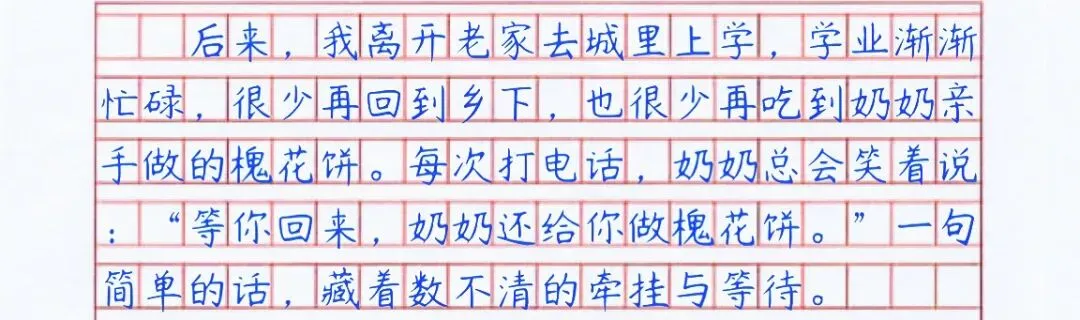 后来，我离开老家去城里上学，学业渐渐
忙碌，很少再回到乡下，也很少再吃到奶奶亲
手做的槐花饼。每次打电话，奶奶总会笑着说
：“等你回来，奶奶还给你做槐花饼。”一句
简单的话，藏着数不清的牵挂与等待。